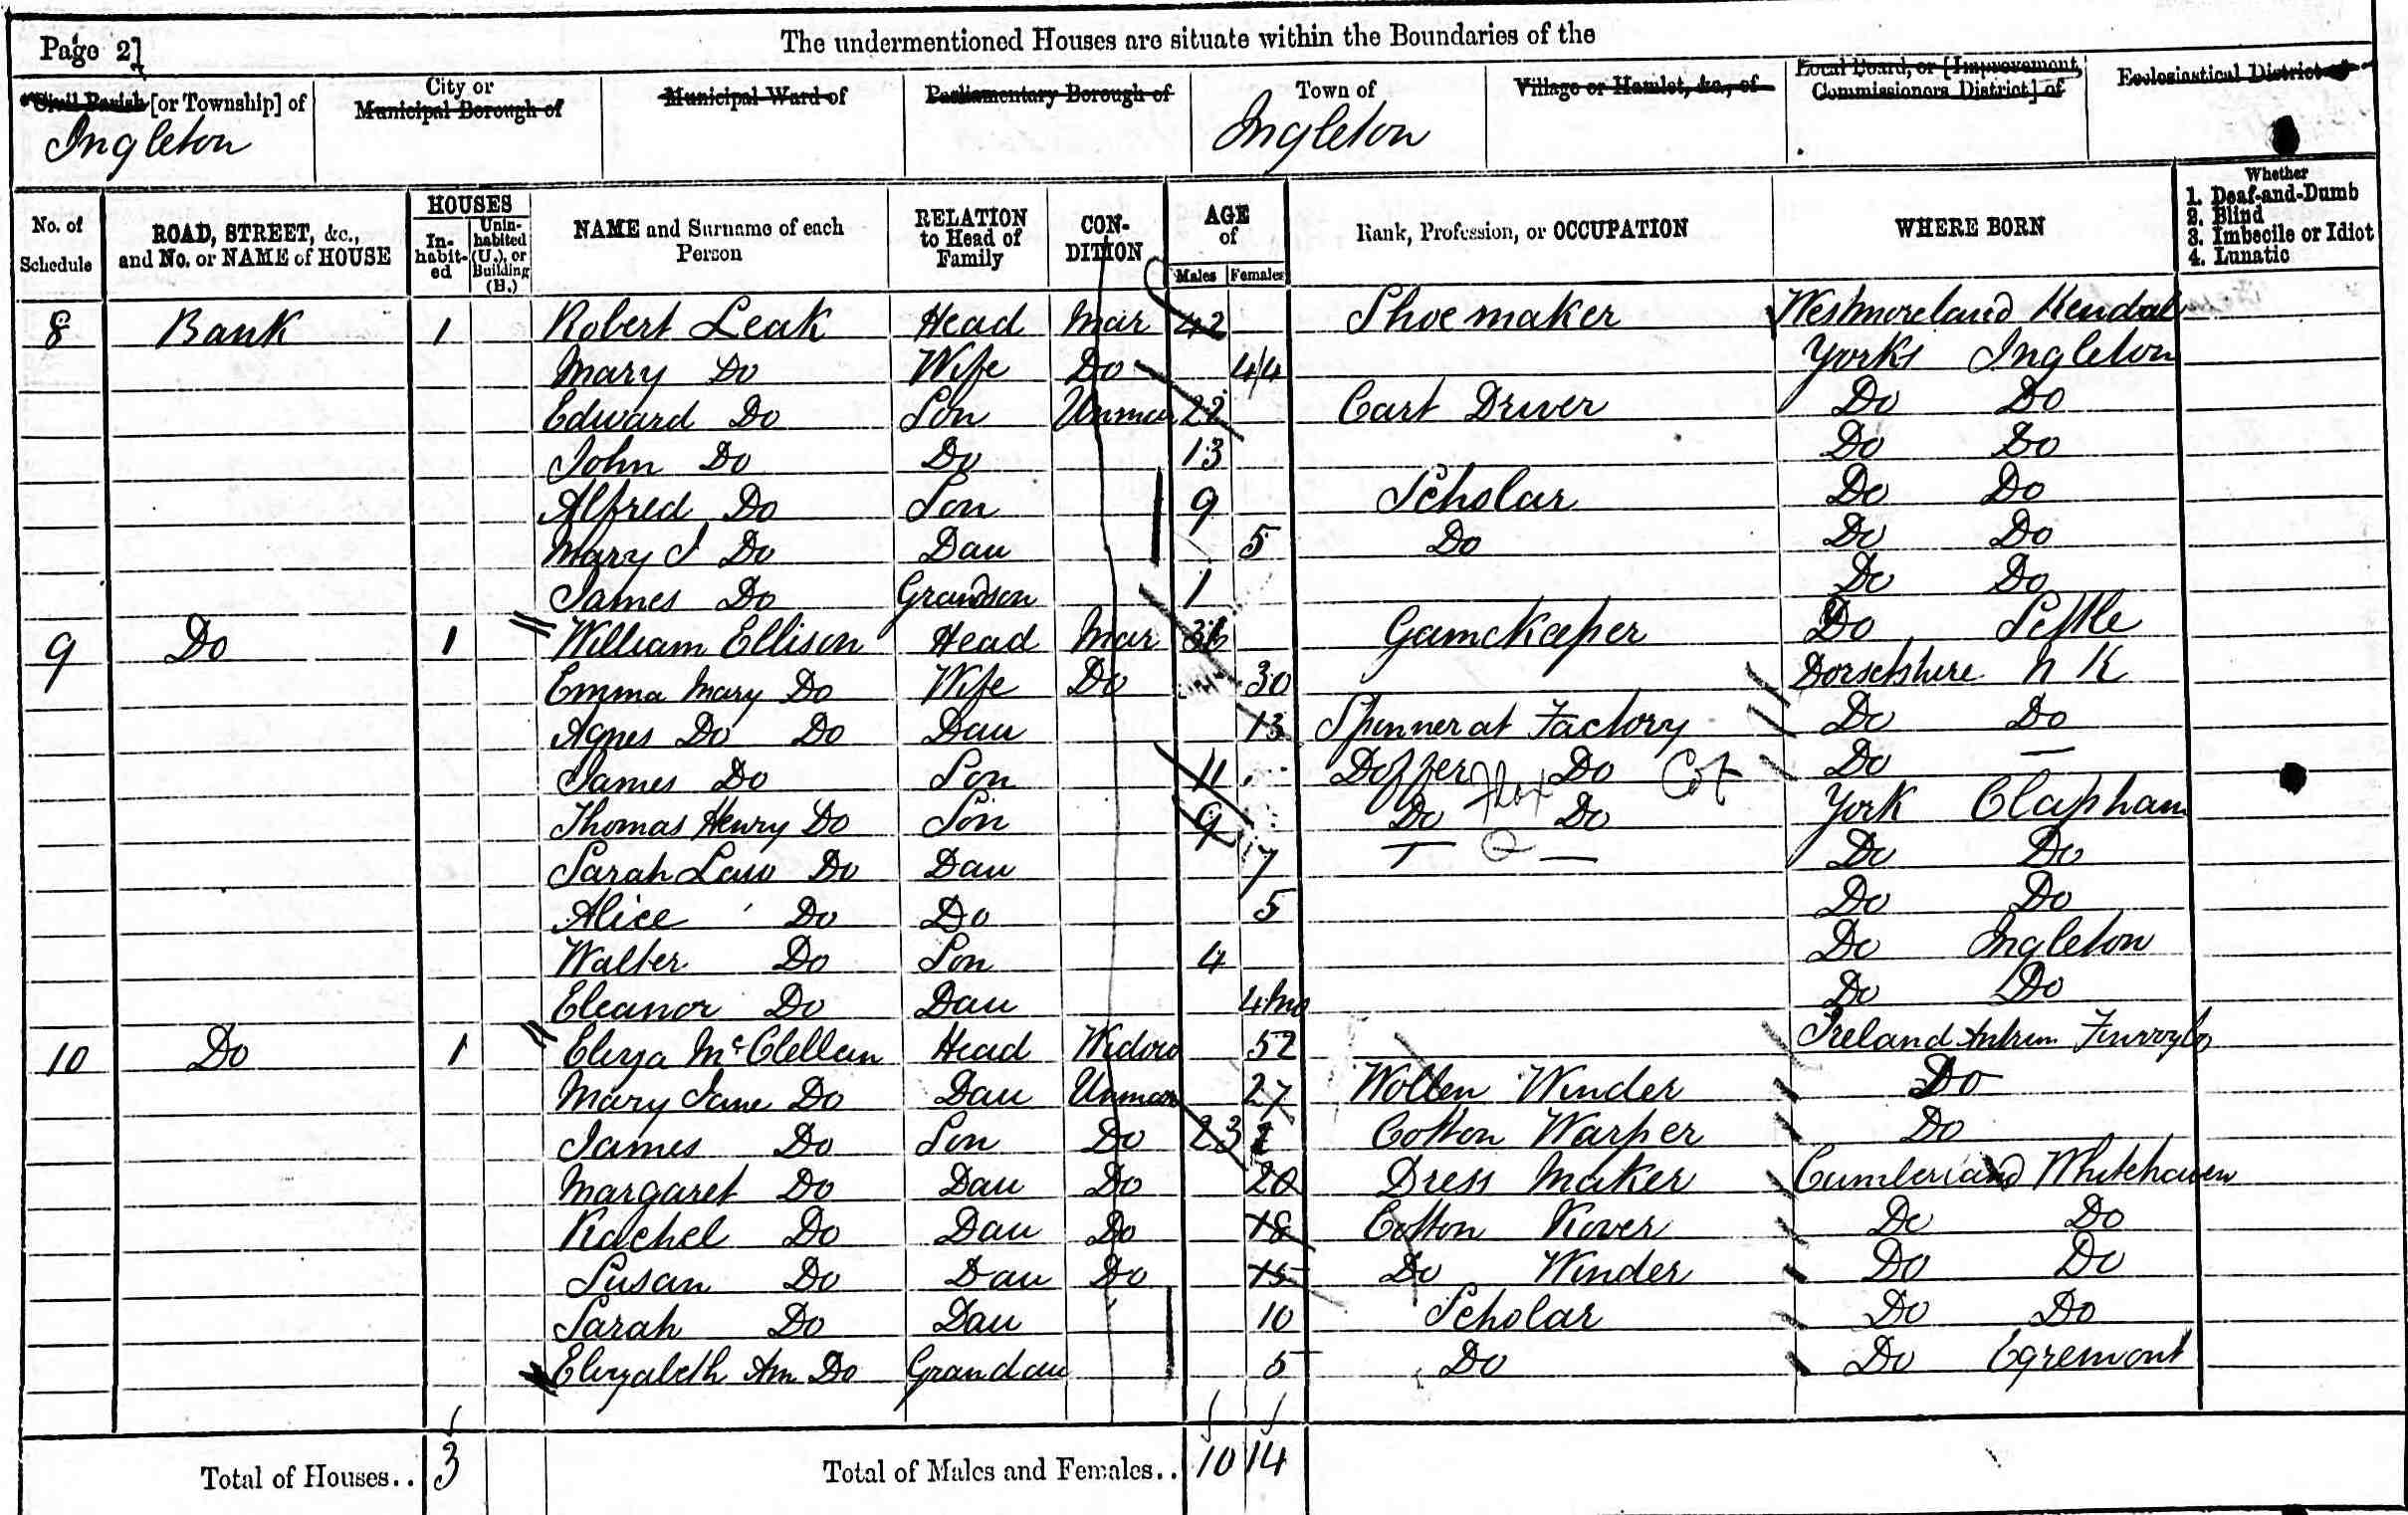 Page 2]
The undermentioned Houses are situate within the Boundaries of the
Civil Parish [or Township] of
City or Municipal Borough of
Municipal Ward of
Parliamentary Borough of
Town of
Village or Hamlet, &c., of
Local Board, or [Improvement Commissioners District] of
Ecclesiastical District of
Ingleton Ingleton
No. of Schedule
ROAD, STREET, &c., and No. or NAME of HOUSE
HOUSES
Inhabited
Uninhabited (U.), or Building (B.)
NAME and Surname of each Person
RELATION to Head of Family
CONDITION
AGE of
Males Females
Rank, Profession, or OCCUPATION
WHERE BORN
Whether
1. Deaf-and-Dumb
2. Blind
3. Imbecile or Idiot
4. Lunatic
8 Bank 1 Robert Leak Head Mar 42 Shoe maker Westmoreland Kendal
Mary Do Wife Do 44 Yorks Ingleton
Edward Do Son Unmar 22 Cart Driver Do Do
John Do Do 13 Do Do
Alfred Do Son 9 Scholar Do Do
Mary J Do Dau 5 Do Do Do
James Do Grandson 1 Do Do
9 Do 1 William Ellison Head Mar Gamekeeper Do Settle
Emma Mary Do Wife Do 30 Dorsetshire N K
Agnes Do Do Dau 13 Spinner at Factory Do Do
James Do Son 11 Doffer Do Do —
flax Cot
Thomas Henry Do Son 9 Do Do York Clapham
Sarah Do Dau 7 Do Do
Alice Do Do 5 Do Do
Walter Do Son 4 Do Ingleton
Eleanor Do Dau 4 mo Do Do
10 Do 1 Eliza McClellan Head Widow 52 Ireland Antrim
Mary Jane Do Dau Unmar 27 Wollen Winder Do
James Do Son Do 23 Cotton Warper Do
Margaret Do Dau Do 20 Dress Maker Cumberland Whitehaven
Rachel Do Dau Do 18 Cotton Rover Do Do
Susan Do Dau Do 15 Do Winder Do Do
Sarah Do Dau 10 Scholar Do Do
Elizabeth Ann Do Grandau 5 Do Do Egremont
Total of Houses.. 3 Total of Males and Females.. 10 14